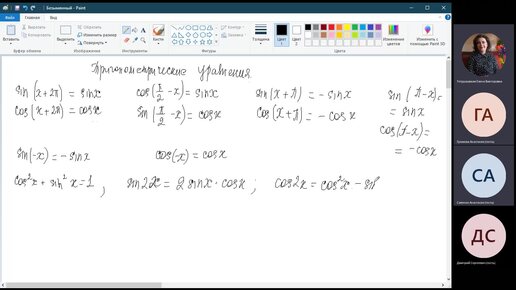 Безымянный - Paint
Файл Главная Вид
Вставить Вырезать Копировать Выделить Обрезать Изменить размер Повернуть Кисти Фигуры Контур Заливка Толщина Цвет 1 Цвет 2 Изменение цветов Изменить с помощью Paint 3D
Буфер обмена Изображение Инструменты Фигуры Цвета
Тригонометрические уравнения
sin(x+2π) = sinx cos(π/2 -x) = sinx sin(x+π) = -sinx sin(π-x)=
= sinx
cos(x+2π) = cosx sin(π/2 -x) = cosx cos(x+π) = -cosx
cos(π-x)=
= -cosx
sin(-x) = -sinx cos(-x) = cosx
cos²x + sin²x = 1, sin2x = 2 sinx · cosx ; cos2x = cos²x - sin
ГА
СА
ДС